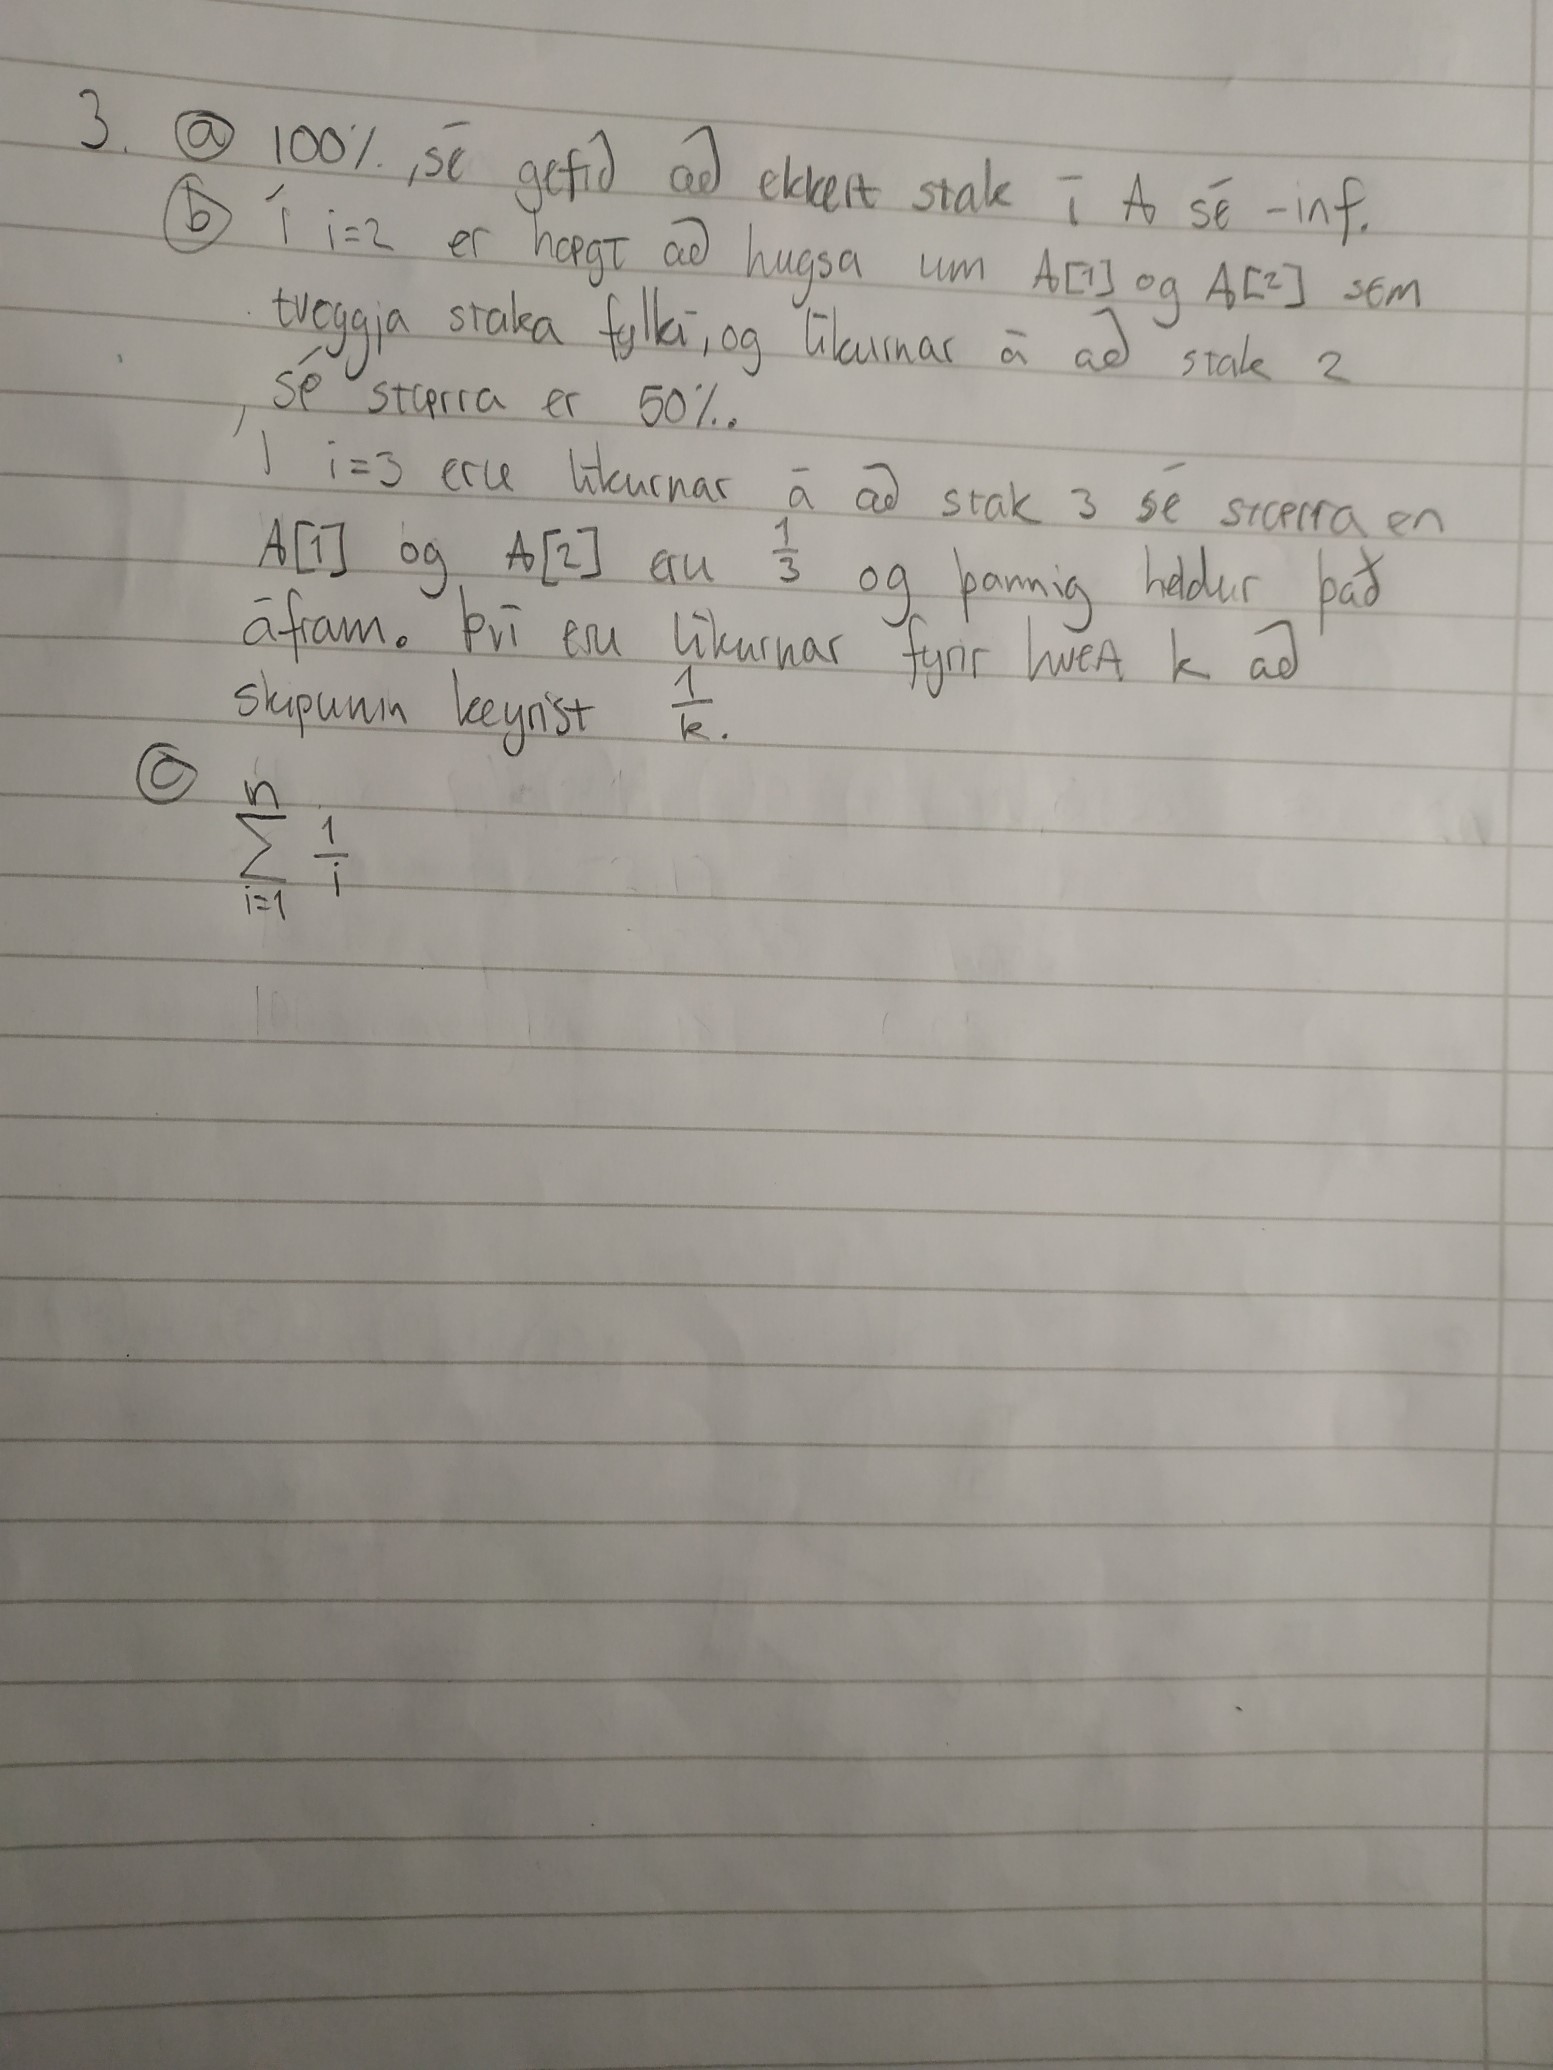 3. (a) 100%, sé gefið að ekkert stak í A sé -inf.
(b) Í i=2 er hægt að hugsa um A[1] og A[2] sem
tveggja staka fylki, og líkurnar á að stak 2
sé stærra er 50%.
Í i=3 eru líkurnar á að stak 3 sé stærra en
A[1] og A[2] eru 1/3 og þannig heldur það
áfram. Því eru líkurnar fyrir hvert k að
skipunin keyrist 1/k.
(c) n
∑ 1/i
i=1